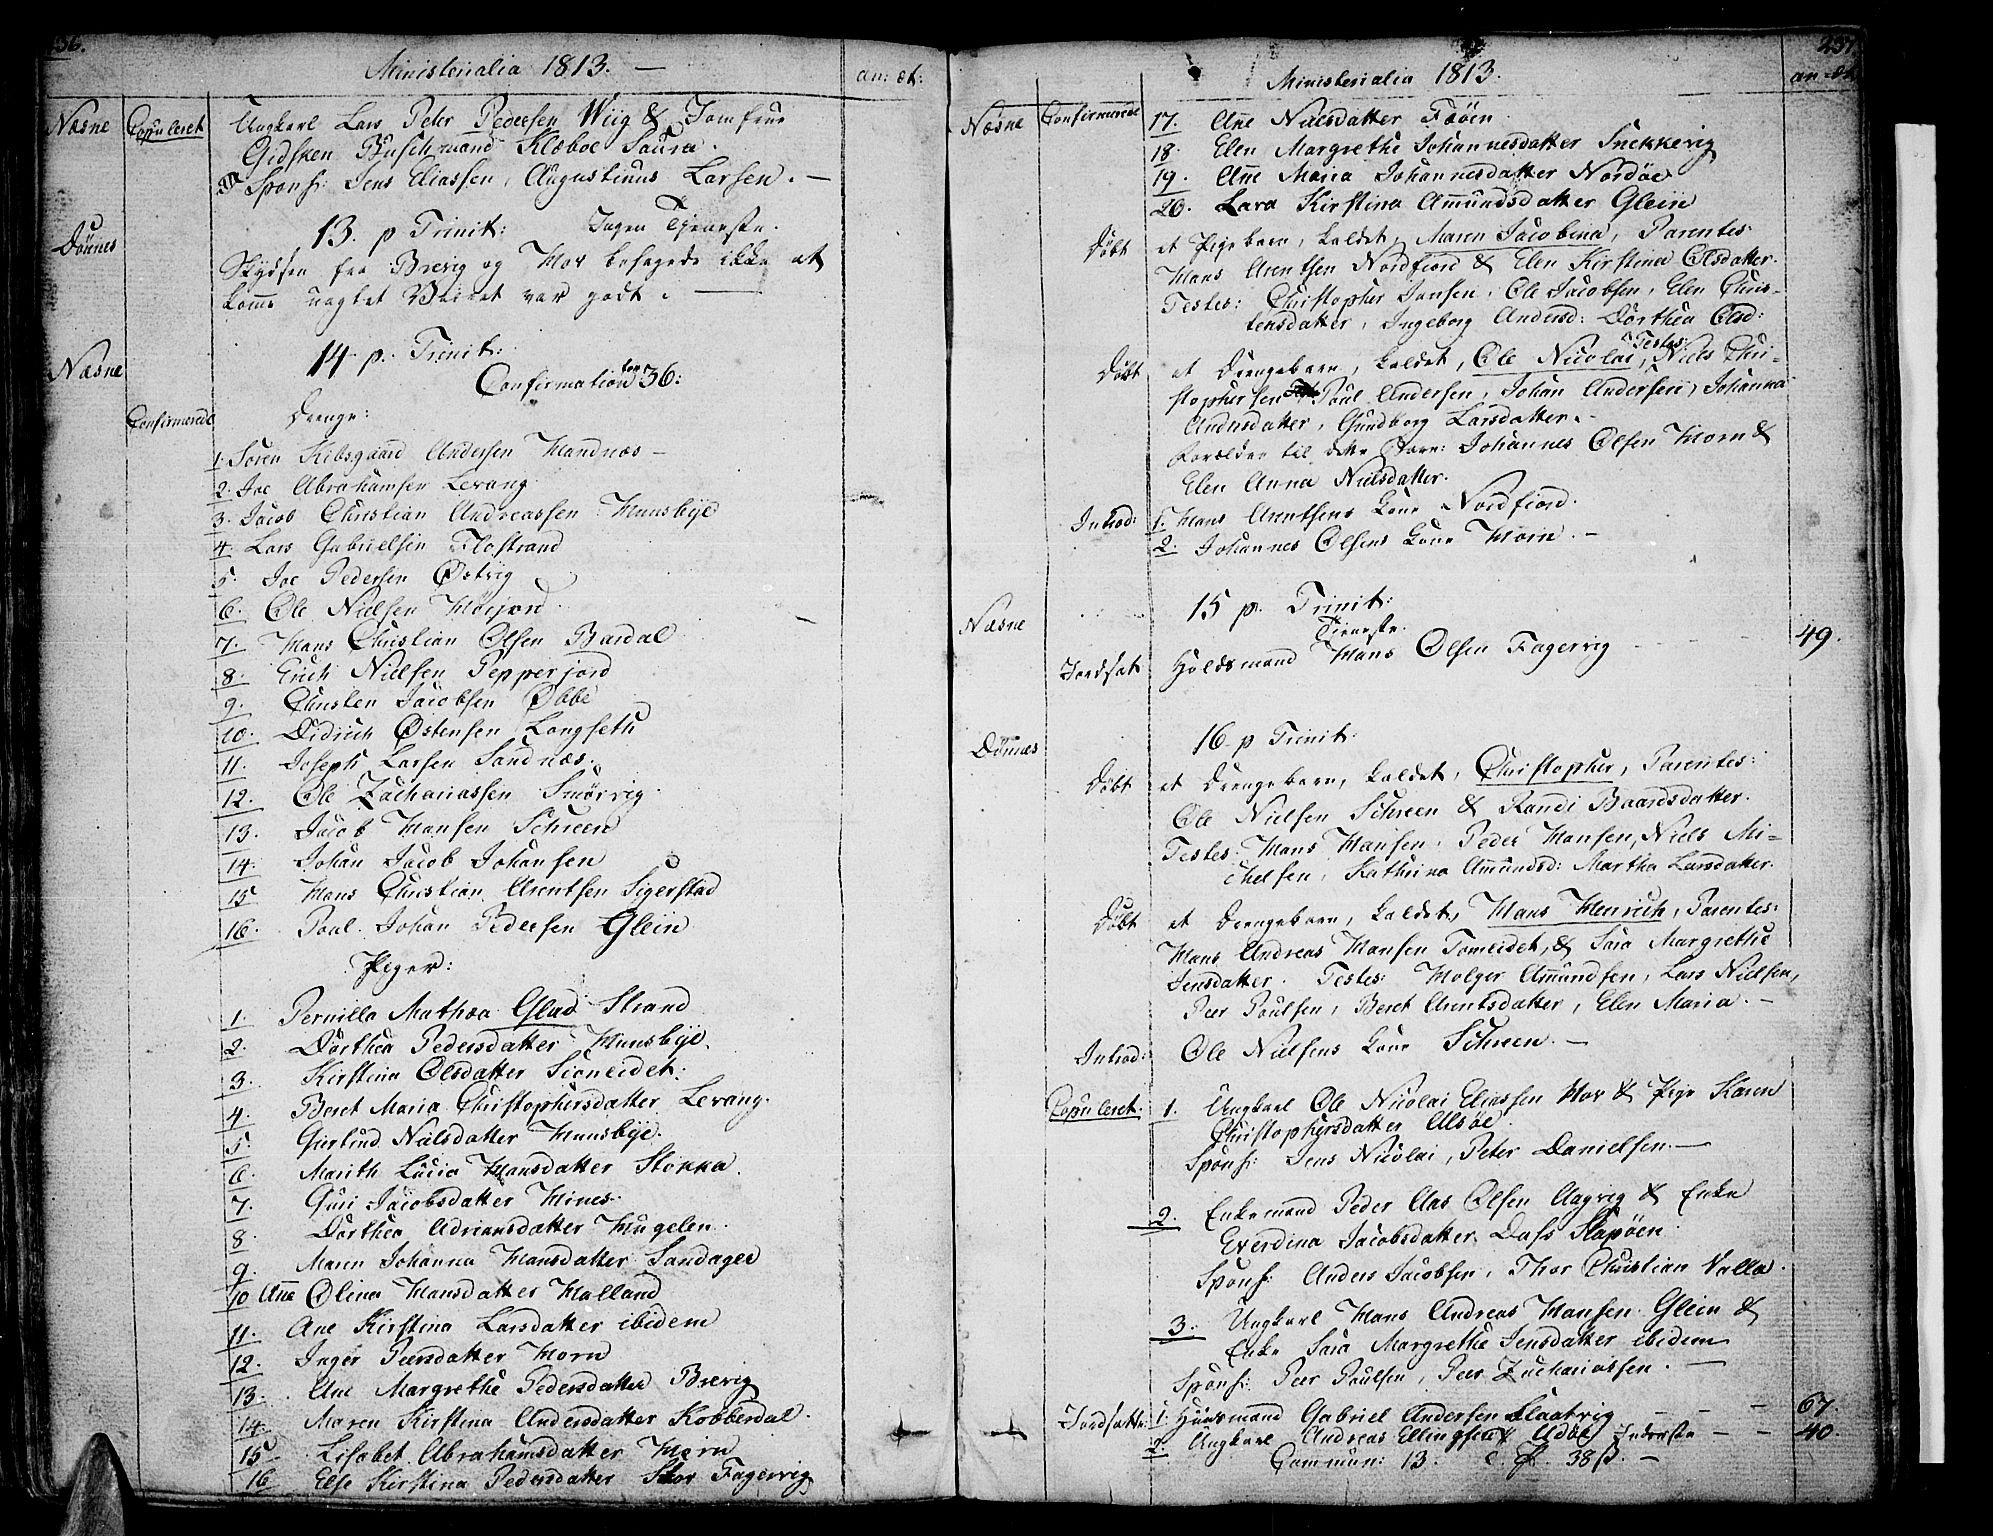 236.
Ministerialia 1813. —
an: æt:
Næsne
Copuleret
Ungkarl Lars Peter Pedersen Wiig & Jomfrue
Gidsken Buschmand Klæboe Saura.
Spons: Jens Eliassen, Augustinus Larsen. —
Dönnes
13. p Trinit: Ingen Tjeneste.
Skydsen fra Brevig og Hov behagede ikke at
komme uagtet Veiret var godt. —
Næsne
14. p. Trinit:
Confirmation for 36:
Confirmerede
Drenge:
1. Sören Kibsgaard Andersen Handnæs —
2. Joe Abrahamsen Levang
3. Jacob Christian Andreassen Huusbye
4. Lars Gabrielsen Flostrand
5. Joe Pedersen Østvig
6. Ole Nielsen Höejord
7. Hans Christian Olsen Bardal
8. Erich Nielsen Pepperjord
9. Christen Jacobsen Øbbe
10. Didrich Østensen Langseth
11. Joseph Larsen Sandnæs.
12. Ole Zachariassen Smörvig
13. Jacob Hansen Schreen
14. Johan Jacob Johansen
15 Hans Christian Arentsen Sigerstad
16. Poul Johan Pedersen Glein
Piger:
1. Pernilla Mathea Glad Strand
2. Dorthea Pedersdatter Huusbye.
3. Kirstina Olsdatter Sioneidet:
4. Beret Maria Christophersdatter Levang.
5. Gurlund Nielsdatter Huusbye.
6. Marith Lucia Hansdatter Stokka.
7. Guri Jacobsdatter Hines.
8. Dorthea Adriansdatter Hugelen.
9. Maren Johanna Hansdatter Sandager
10 Ane Olina Hansdatter Halland
11. Ane Kirstina Larsdatter ibidem
12. Inger Peersdatter Horn
13. Ane Margrethe Pedersdatter Brevig
14. Maren Kirstina Andersdatter Kobberdal.
15 Lisabet Abrahamsdatter Horn
16 Else Kirstina Pedersdatter Stor Fagervig
237
Ministerialia 1813.
an: æt
Næsne
Confirmerede
17. Ane Nielsdatter Fööen
18. Elen Margrethe Johannesdatter Snekkevig
19. Ane Maria Johannesdatter Nordöe
20. Lava Kirstina Amundsdatter Glein
Döbt et Pigebarn, kaldet, Maren Jacobina, Parentes:
Hans Arentsen Nordfiord & Elen Kirstina Olsdatter.
Testes: Christopher Jansen, Ole Jacobsen, Elen Chris-
tensdatter, Ingeborg Andersd: Dorthea Olsd:
Döbt et Drengebarn, kaldet, Ole Nicolai, Testes: Niels Chri-
stophersen Poul Andersen, Johan Andersen, Johanna
Andersdatter, Gundborg Larsdatter.
Forældre til dette Barn: Johannes Olsen Horn &
Elen Anna Nielsdatter.
Introd: 1. Hans Arentsens Kone Nordfiord.
2. Johannes Olsens Kone Horn. —
Næsne
15 p. Trinit:
Tieneste.
Jordfæt Holdsmand Hans Olsen Fagervig 49.
Dönnæs
16 p Trinit:
Döbt et Drengebarn, kaldet, Christopher, Parentes:
Ole Nielsen Schreen & Randi Baardsdatter.
Testes Hans Hansen, Peder Hansen, Niels Mi-
chelsen, Kathrina Amundsd: Martha Larsdatter.
Döbt et Drengebarn, kaldet, Hans Henrich, Parentes:
Hans Andreas Hansen Tomeidet, & Sara Margrethe
Jensdatter. Testes: Holger Amundsen, Lars Nielsen,
Peer Poulsen, Beret Arentsdatter, Elen Maria. —
Introd: Ole Nielsens Kone Schreen. —
Copuleret. 1. Ungkarl Ole Nicolai Eliassen Hov & Pige Karen
Christophersdatter Alsöe
Spons: Jens Nicolai, Peter Danielsen. —
2. Enkemand Peder Aas Olsen Aagvig & Enke
Everdina Jacobsdatter Dass Slapöen
Spons: Anders Jacobsen, Thor Christian Valla.
3. Ungkarl Hans Andreas Hansen Glein &
Enke Sara Margrethe Jensdatter ibidem
Spons: Peer Poulsen, Peer Zachariassen. —
Jordfætte 1. Huusmand Gabriel Andersen Slaatvig — — — 67.
2. Ungkarl Andreas Ellingsen Udöe Inderste — — 40.
Commun: 13. 38 ß. —